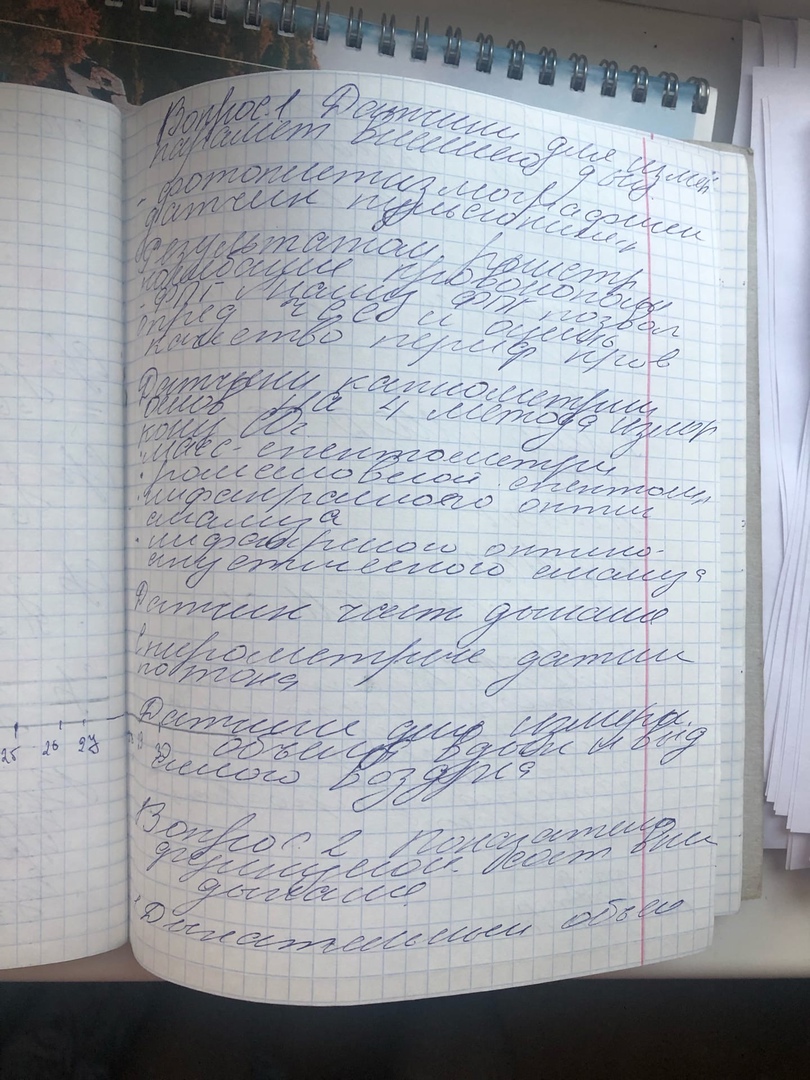 Вопрос 1 Датчики для измер
парамет внешнего дых
- фотоплетизмографии
датчик пульсоник
Результатом регистр
колебание кровополн
- ФПГ Анализ ФПГ позвол
опред ЧСС и оценить
качество периф кров
Датчики капнометрии
основ на 4 метода измер
конц CO2
масс-спектометрии
· рамановской спектом
· инфакрасного оптич
анализа
· инфакрасного оптико-
акустического анализа
Датчик част. дыхания
Спирометрич датчик
потока
Датчики для измерен.
объемов вдых и выд
хаемого воздуха
Вопрос 2 Показатели
функцион. сост вн
дыхание
Дыхательный объем
25 26 27